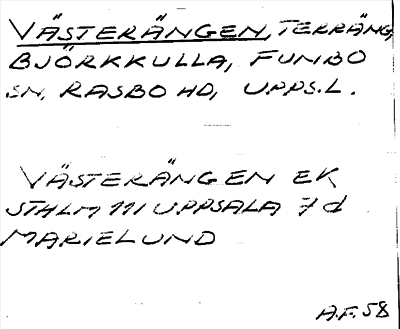 VÄSTERÄNGEN, TERRÄNG,
BJÖRKKULLA, FUNBO
SN, RASBO HD, UPPS.L.
VÄSTERÄNGEN EK
STHLM 111 UPPSALA 7 d
MARIELUND
A.F. 58